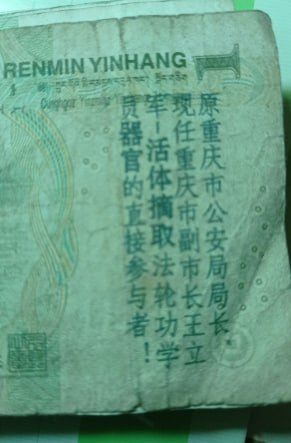 RENMIN YINHANG
原重庆市公安局局长
现任重庆市副市长王立
军-活体摘取法轮功学
员器官的直接参与者！